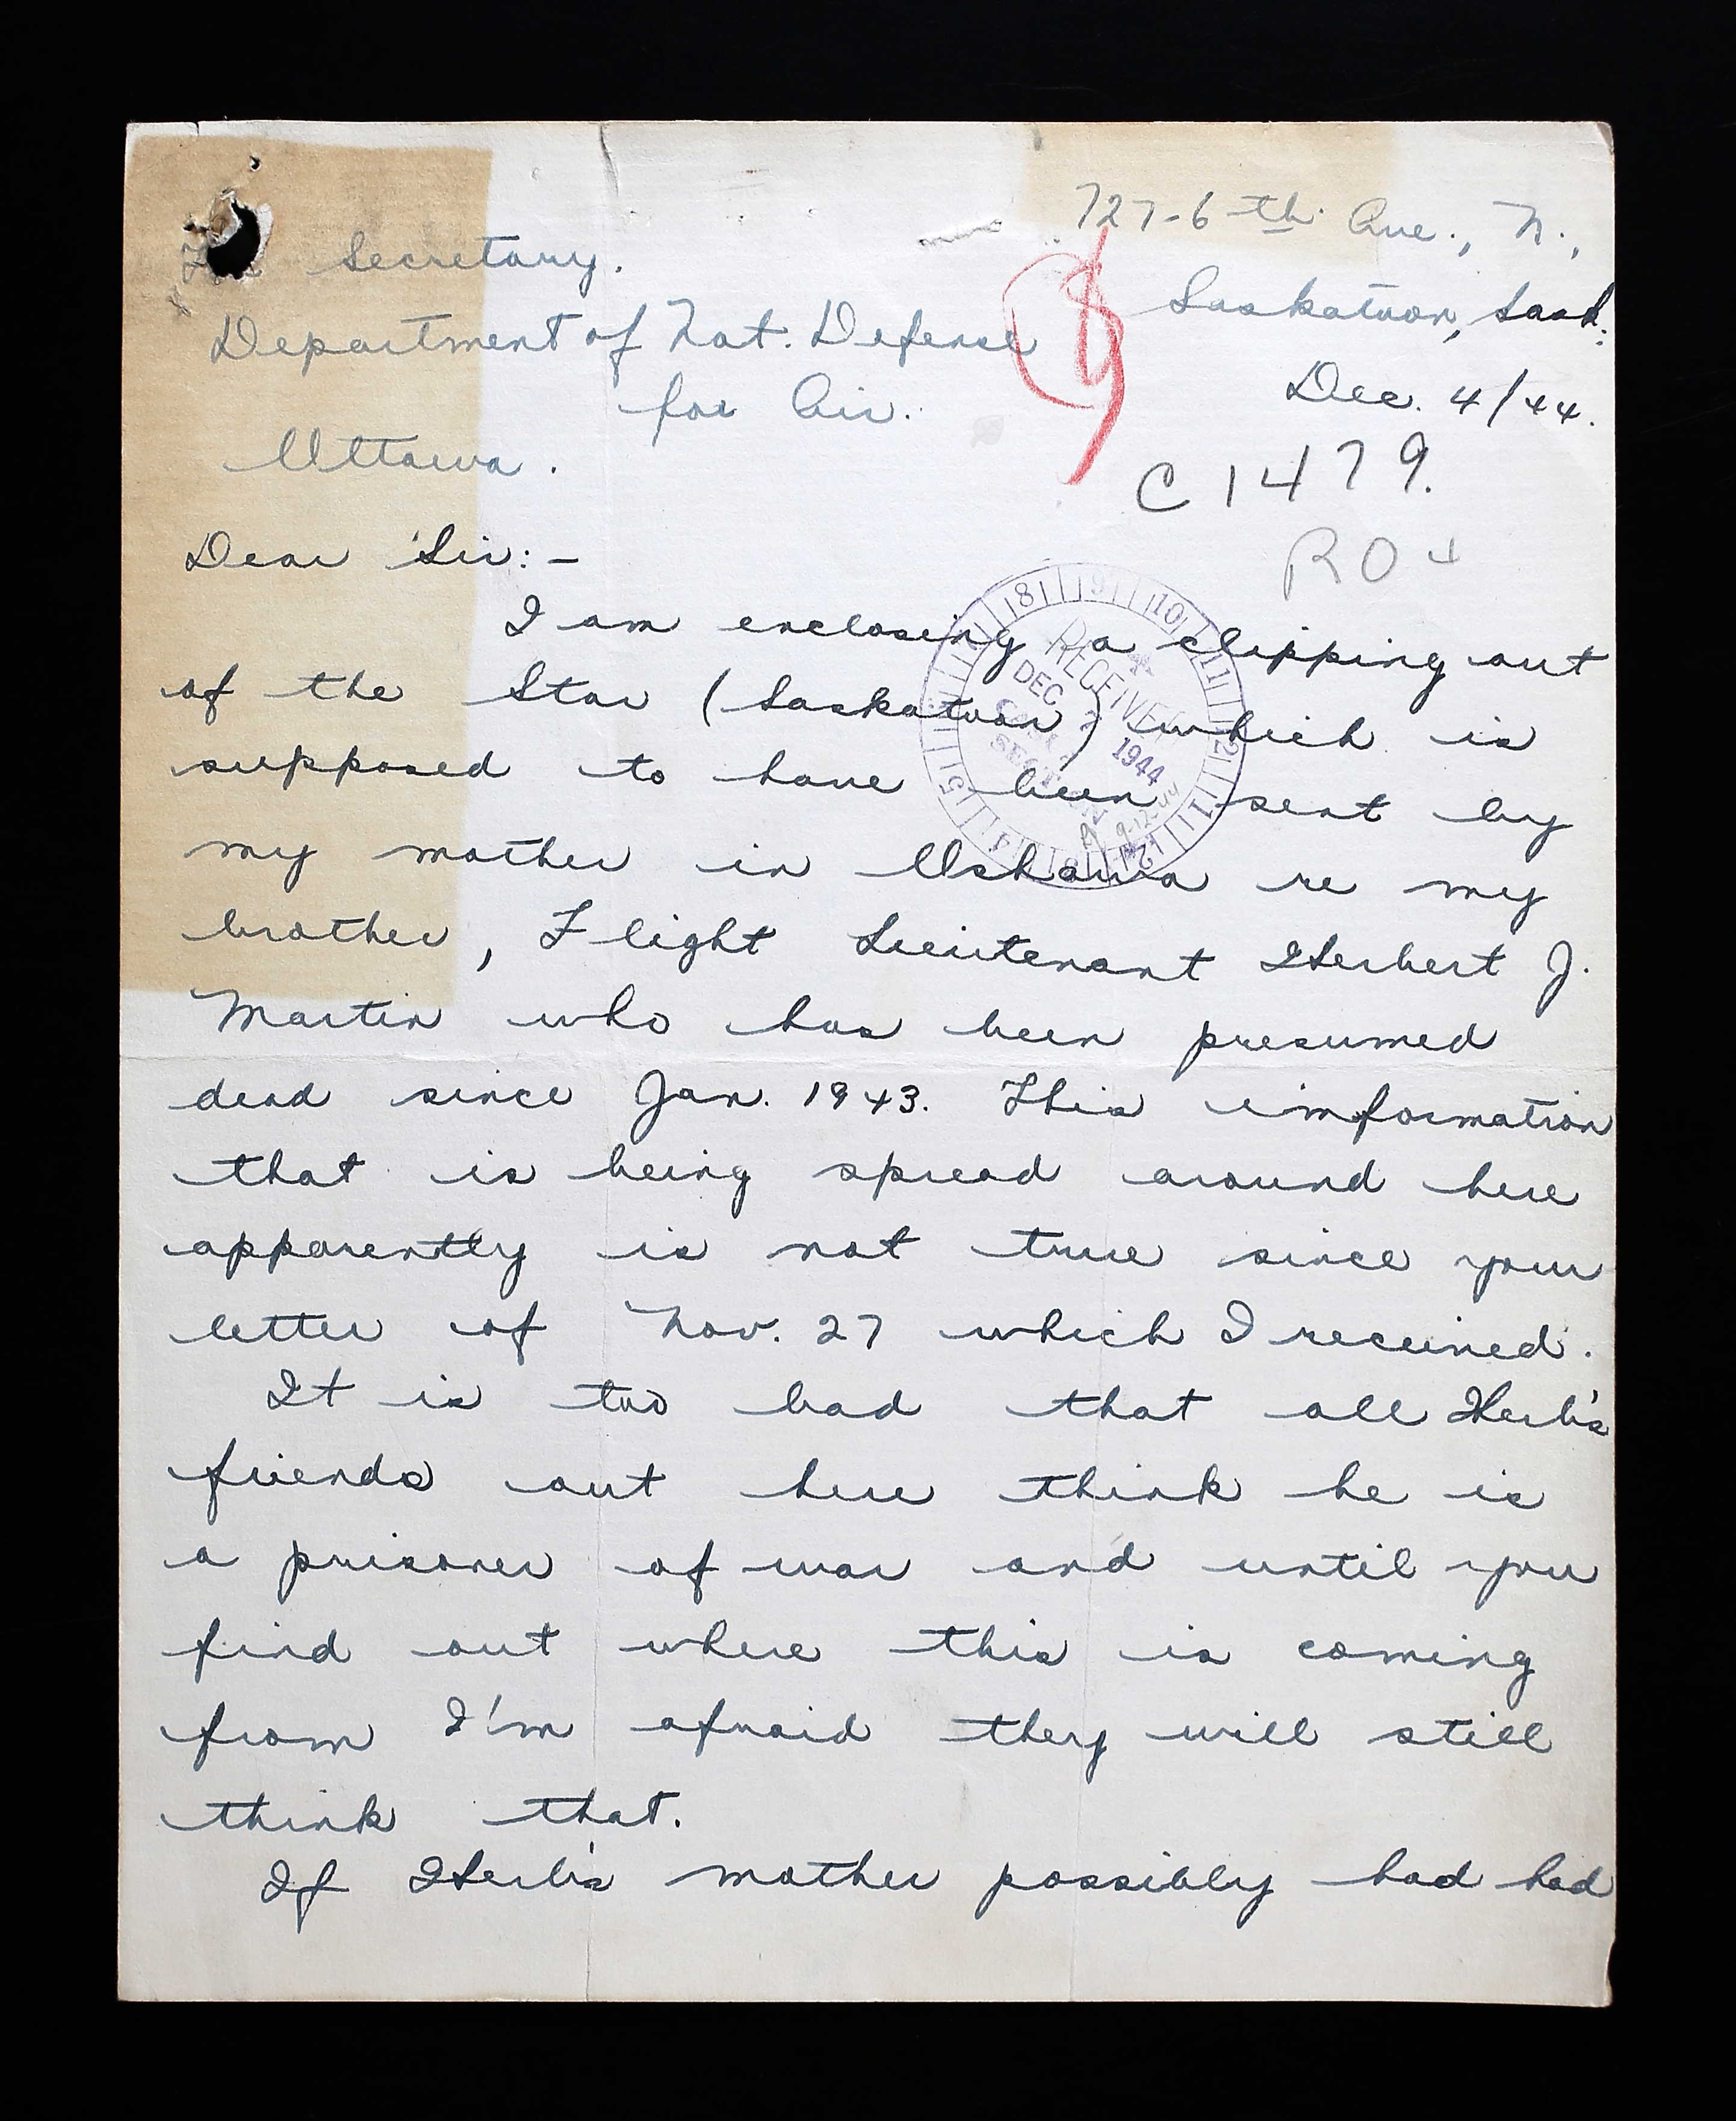 727-6th Ave., N.,
Saskatoon, Sask.
Dec. 4/44.
C1479.
RO4
The Secretary.
Department of Nat. Defense
for Air.
Ottawa.
Dear Sir:-
I am enclosing a clipping out
of the Star (Saskatoon) which is
supposed to have been sent by
my mother in Oshawa re my
brother, Flight Lieutenant Herbert J.
Martin who has been presumed
dead since Jan. 1943. This imformation
that is being spread around here
apparently is not true since your
letter of Nov. 27 which I received.
It is too bad that all Herb's
friends out here think he is
a prisoner of war and until you
find out where this is coming
from I'm afraid they will still
think that.
If Herb's mother possibly had had
RECEIVED
DEC
1944
8 9 10 11 12 1